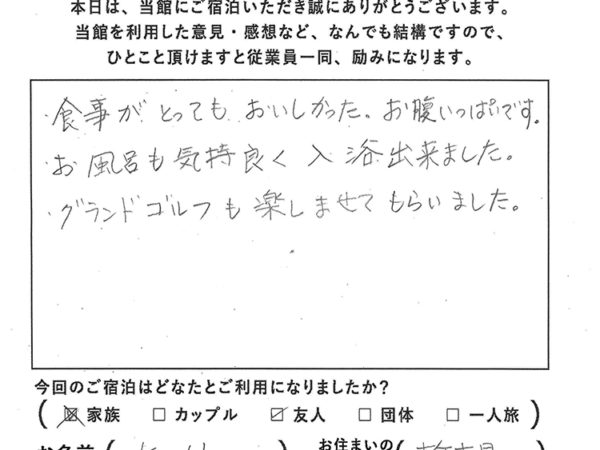 本日は、当館にご宿泊いただき誠にありがとうございます。
当館を利用した意見・感想など、なんでも結構ですので、
ひとこと頂けますと従業員一同、励みになります。
・食事がとってもおいしかった。お腹いっぱいです。
・お風呂も気持良く入浴出来ました。
・グランドゴルフも楽しませてもらいました。
今回のご宿泊はどなたとご利用になりましたか?
(☒家族 □カップル ☑友人 □団体 □一人旅)
お名前( ) お住まいの(